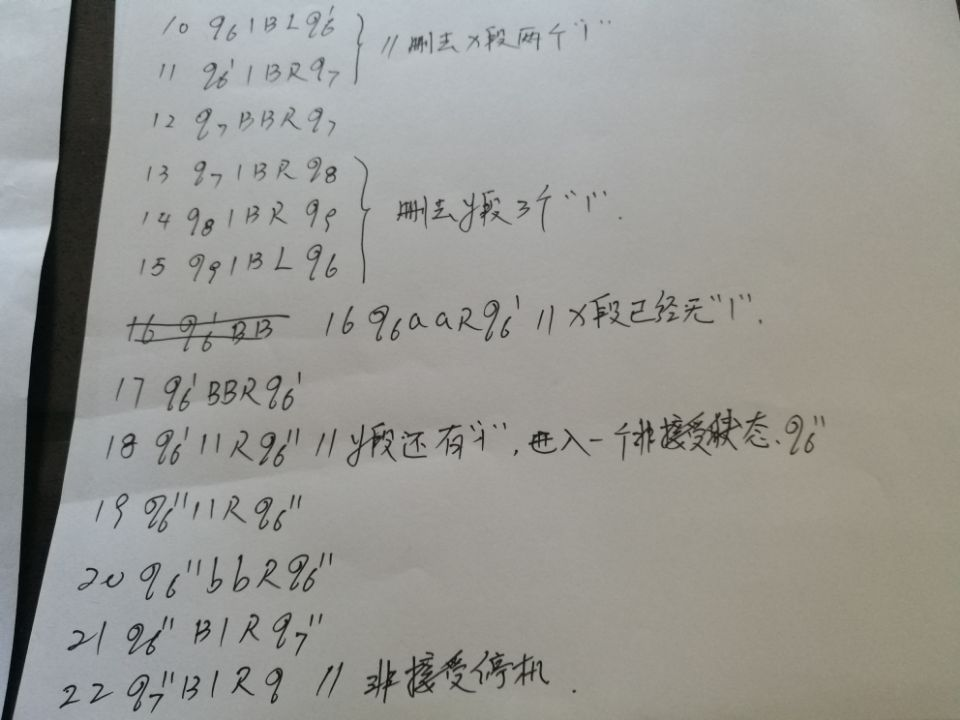 10 q₆ 1 B L q₆' // 删去x段两个"1"
11 q₆' 1 B R q₇
12 q₇ B B R q₇
13 q₇ 1 B R q₈
14 q₈ 1 B R q₉ 删去y段3个"1".
15 q₉ 1 B L q₆
16 q₆' B B 16 q₆ a a R q₆' // x段已经无"1".
17 q₆' B B R q₆'
18 q₆' 1 1 R q₆" // y段还有"1", 进入一个非接受状态、q₆"
19 q₆" 1 1 R q₆"
20 q₆" b b R q₆"
21 q₆" B 1 R q₇"
22 q₇" B 1 R q // 非接受停机.